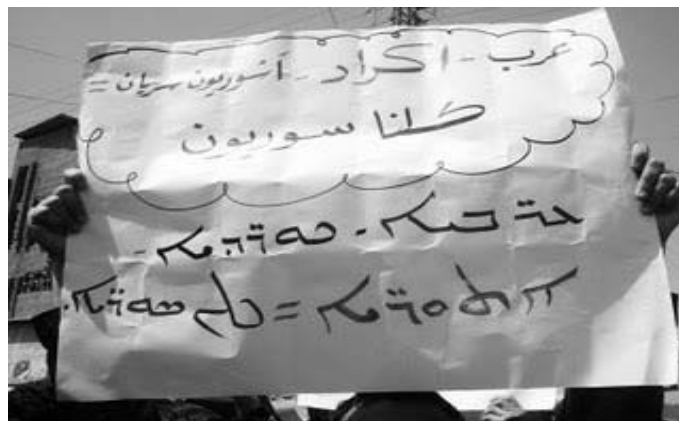 عرب - اكراد - آشوريون سريان =
كلنا سوريون
ܥܪ̈ܒܝܐ - ܟܘܪ̈ܕܝܐ -
ܐܬܘܪ̈ܝܐ = ܟܠܢ ܣܘܪ̈ܝܐ.